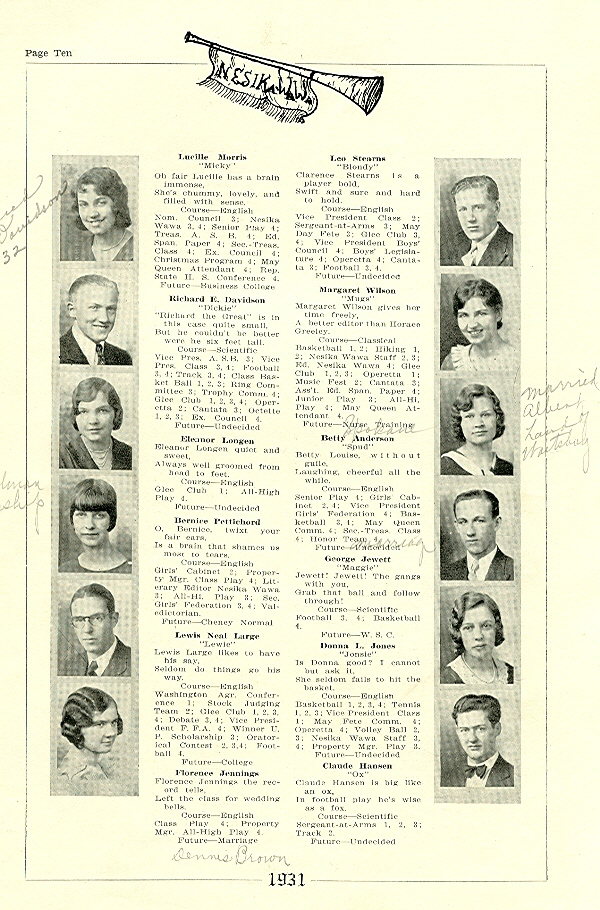 Page Ten
NESIKA W.
Lucille Morris
"Micky"
Oh fair Lucille has a brain
immense,
She's chummy, lovely, and
filled with sense.
Course—English
Nom. Council 3; Nesika
Wawa 3, 4; Senior Play 4;
Treas. A. S. B. 4; Ed.
Span. Paper 4; Sec.-Treas.
Class 4; Ex. Council 4;
Christmas Program 4; May
Queen Attendant 4; Rep.
State H. S. Conference 4.
Future—Business College
Richard E. Davidson
"Dickie"
"Richard the Great" is in
this case quite small,
But he couldn't be better
were he six feet tall.
Course—Scientific
Vice Pres. A.S.B. 3; Vice
Pres. Class 3, 4; Football
3, 4; Track 3, 4; Class Bas-
ket Ball 1, 2, 3; Ring Com-
mittee 3; Trophy Comm. 4;
Glee Club 1, 2, 3, 4; Oper-
etta 2; Cantata 3; Octette
1, 2, 3; Ex. Council 4.
Future—Undecided
Eleanor Longen
Eleanor Longen quiet and
sweet,
Always well groomed from
head to feet.
Course—English
Glee Club 1; All-High
Play 4.
Future—Undecided
Bernice Pettichord
O, Bernice, twixt your
fair ears,
Is a brain that shames us
most to tears.
Course—English
Girls' Cabinet 2; Proper-
ty Mgr. Class Play 4; Lit-
erary Editor Nesika Wawa
3; All-Hi. Play 3; Sec.
Girls' Federation 3, 4; Val-
edictorian.
Future—Cheney Normal
Lewis Neal Large
"Lewie"
Lewis Large likes to have
his say,
Seldom do things go his
way.
Course—English
Washington Agr. Confer-
ence 1; Stock Judging
Team 2; Glee Club 1, 2, 3,
4; Debate 3, 4; Vice Presi-
dent F. F. A. 4; Winner U.
P. Scholarship 3; Orator-
ical Contest 2, 3, 4; Foot-
ball 4.
Future—College
Florence Jennings
Florence Jennings the rec-
ord tells,
Left the class for wedding
bells.
Course—English
Class Play 4; Property
Mgr. All-High Play 4.
Future—Marriage
Dennis Brown
Leo Stearns
"Blondy"
Clarence Stearns is a
player bold,
Swift and sure and hard
to hold.
Course—English
Vice President Class 2;
Sergeant-at-Arms 3; May
Day Fete 3; Glee Club 3,
4; Vice President Boys'
Council 4; Boys' Legisla-
ture 4; Operetta 4; Canta-
ta 3; Football 3, 4.
Future—Undecided
Margaret Wilson
"Mugs"
Margaret Wilson gives her
time freely,
A better editor than Horace
Greeley.
Course—Classical
Basketball 1, 2; Hiking 1,
2; Nesika Wawa Staff 2, 3;
Ed. Nesika Wawa 4; Glee
Club 1, 2, 3; Operetta 1;
Music Fest 2; Cantata 3;
Ass't. Ed. Span. Paper 4;
Junior Play 3; All-Hi.
Play 4; May Queen At-
tendant 4.
Future—Nurse Training
Spokane
Betty Anderson
"Spud"
Betty Louise, without
guile,
Laughing, cheerful all the
while.
Course—English
Senior Play 4; Girls' Cab-
inet 2, 4; Vice President
Girls' Federation 4; Bas-
ketball 3, 4; May Queen
Comm. 4; Sec.-Treas. Class
4; Honor Team
Future—Undecided
George Jewett
"Maggie"
Jewett! Jewett! The gangs
with you,
Grab that ball and follow
through!
Course—Scientific
Football 3, 4; Basketball
4.
Future—W. S. C.
Donna L. Jones
"Jonsie"
Is Donna good? I cannot
but ask it,
She seldom fails to hit the
basket.
Course—English
Basketball 1, 2, 3, 4; Tennis
1, 2, 3; Vice President Class
1; May Fete Comm. 4;
Operetta 4; Volley Ball 2,
3; Nesika Wawa Staff 3,
4; Property Mgr. Play 3.
Future—Undecided
Claude Hansen
"Ox"
Claude Hansen is big like
an ox,
In football play he's wise
as a fox.
Course—Scientific
Sergeant-at-Arms 1, 2, 3;
Track 2.
Future—Undecided
Davidson
32
married
Albert
1931